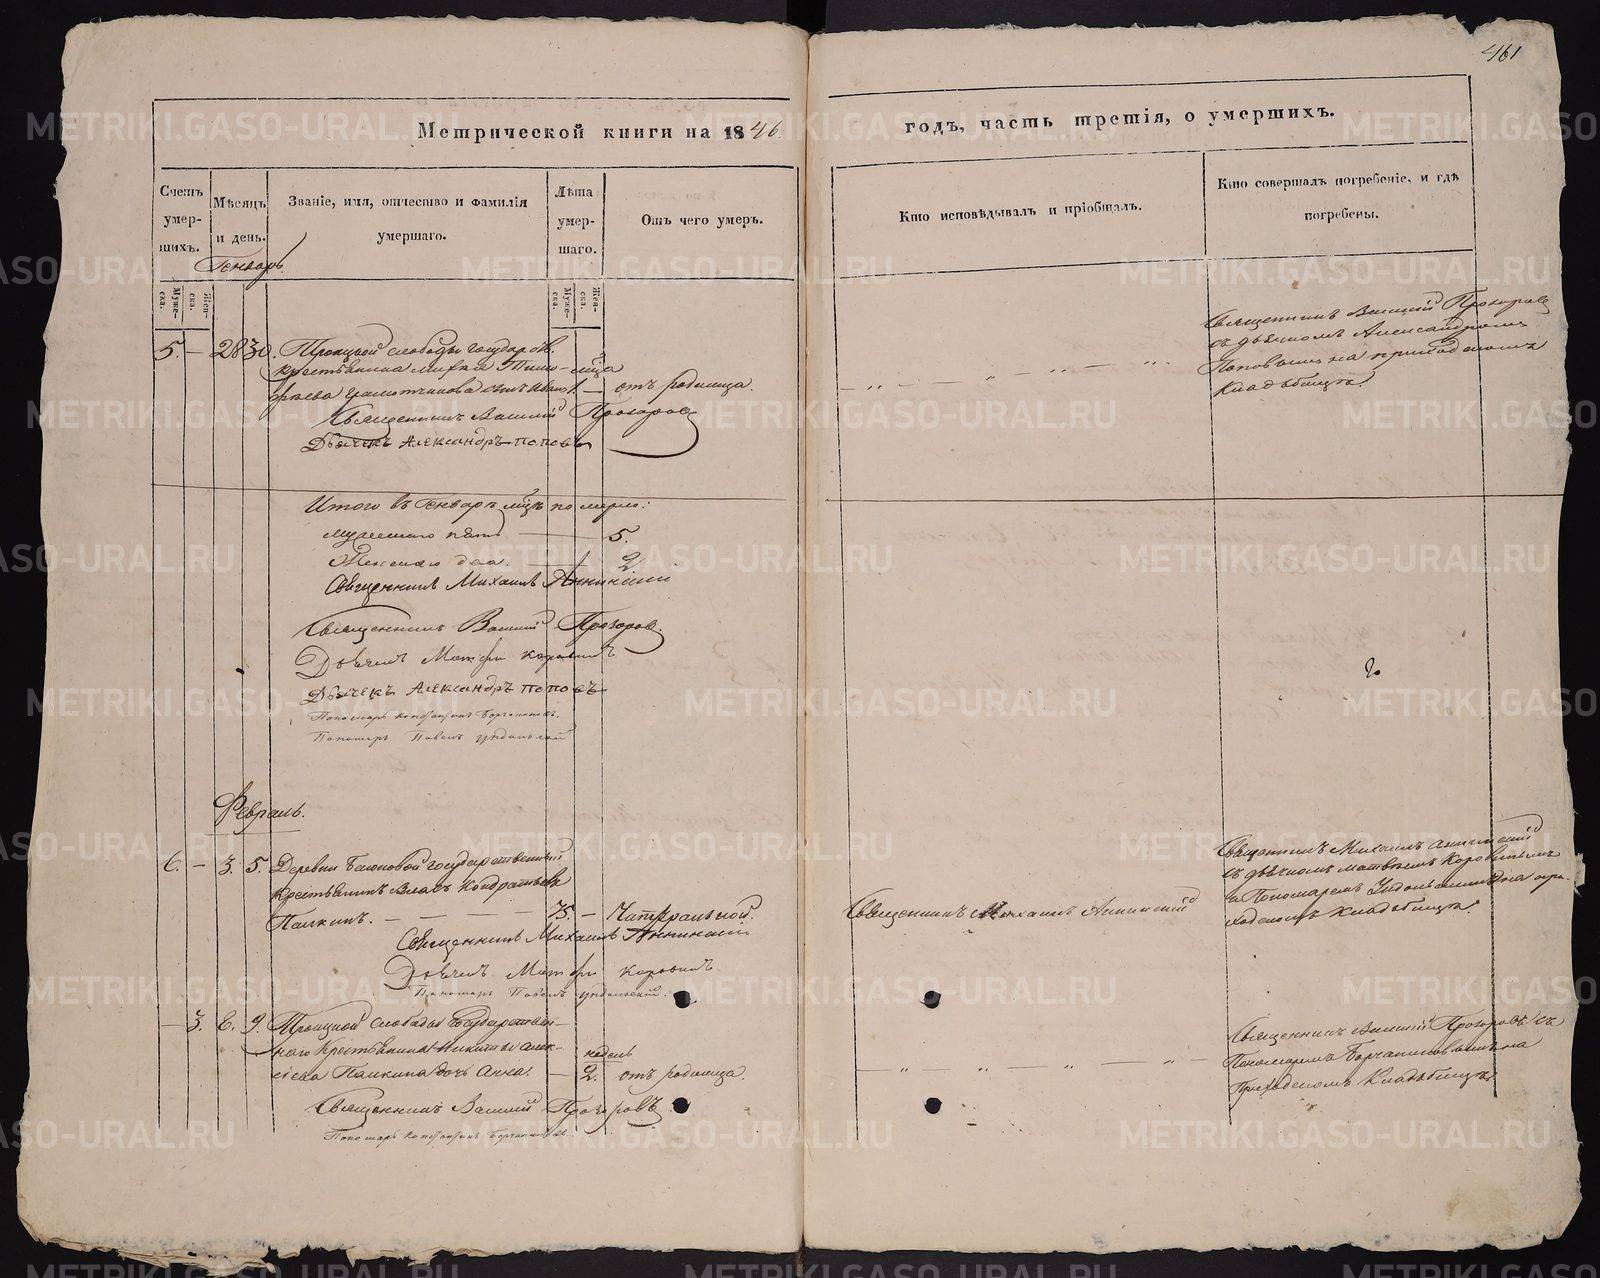 461
Метрической книги на 1846.
годъ, часть третія, о умершихъ.
Счетъ умер-шихъ.
Мѣсяцъ и день.
Званіе, имя, отчество и фамилія умершаго.
Лѣта умер-шаго.
Отъ чего умеръ.
Кто исповѣдывалъ и пріобщалъ.
Кто совершалъ погребеніе, и гдѣ погребены.
Генварь.
Муже-ска.
Жен-ска.
Муже-ска.
Жен-ска.
5. — 28 30. Троицкой слободы государств.
крестьянина
сынъ Иванъ 1. — отъ родимца
Священникъ Василій Прозоровъ
Дьячекъ Александръ Поповъ
Священникъ Василій Прозоровъ
съ дьячкомъ Александромъ
Поповымъ на приходскомъ
кладбищѣ.
Итого въ Генварѣ мцѣ померло:
мужескаго пять — 5.
Женскаго два. — 2.
Священникъ Михаилъ Аннинскій
Священникъ Василій Прозоровъ.
Дьячекъ Матфей Коровинъ
Дьячекъ Александръ Поповъ
Пономарь Константинъ
Пономарь Павелъ
Февраль.
6. — 3. 5. Деревни государственный
крестьянинъ Власъ Кондратьевъ
Палкинъ. — 75. — Натуральной.
Священникъ Михаилъ Аннинскій
Дьячекъ Матфей Коровинъ
Пономарь Павелъ
Священникъ Михаилъ Аннинскій
Священникъ Михаилъ Аннинскій
съ дьячкомъ Матвѣемъ Коровинымъ
и Пономаремъ на при-
ходскомъ кладбищѣ.
— 3. 6. 9. Троицкой слободы Государствен-
наго Крестьянина Никиты Алек-
сѣева Палкина дочь Анна. — недѣль 2. отъ родимца.
Священникъ Василій Прозоровъ
Пономарь Константинъ
Священникъ Василій Прозоровъ съ
Пономаремъ на
Приходскомъ Кладбищѣ.
METRIKI.GASO-URAL.RU